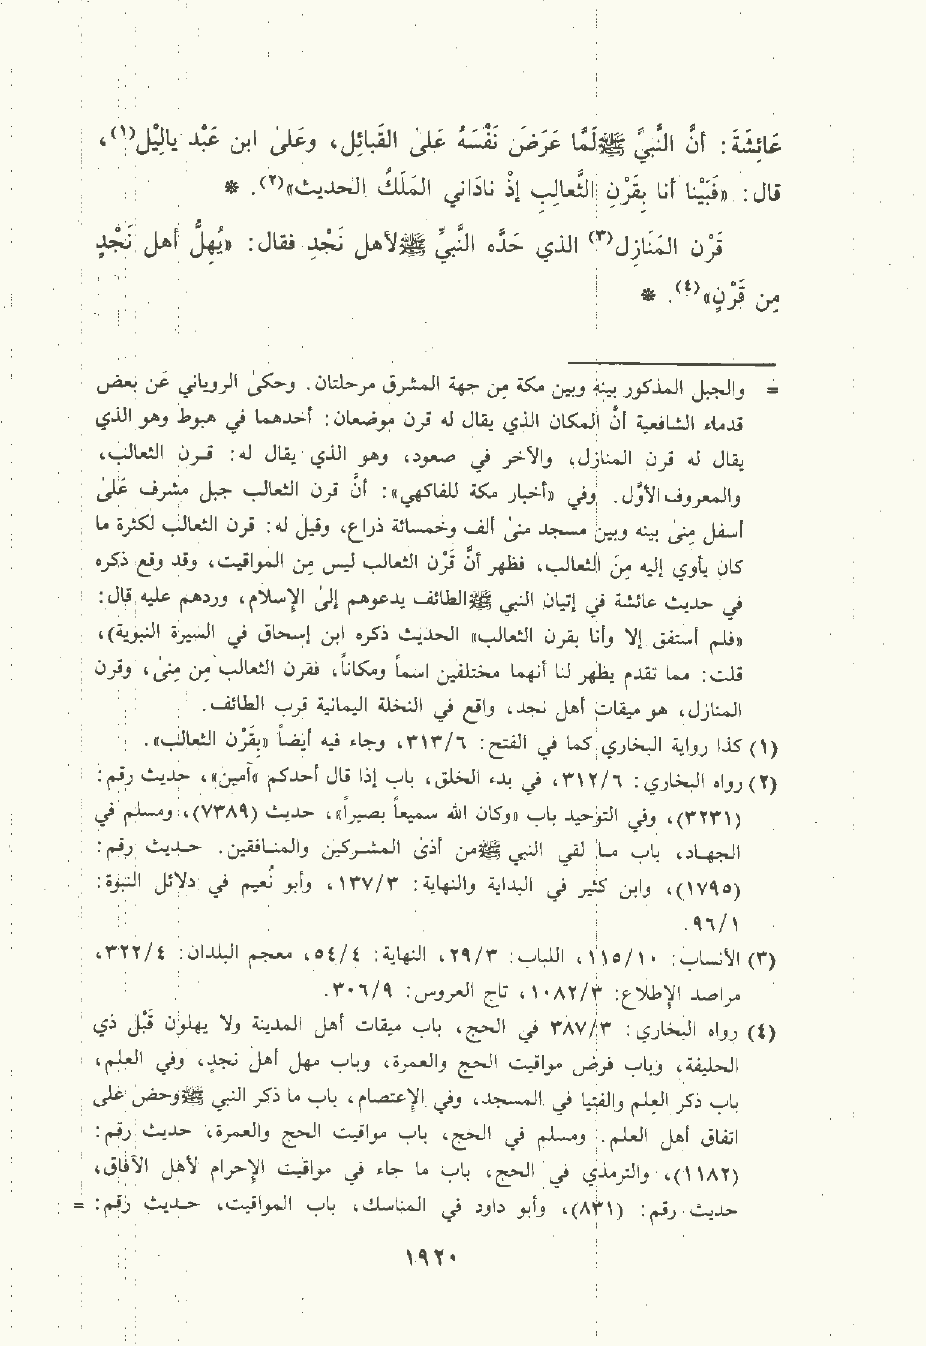 عَائِشَةَ: أنَّ النَّبيَّ ﷺ لَمَّا عَرَضَ نَفْسَهُ عَلىٰ القَبائِل، وعَلىٰ ابن عَبْد يالِيْل(١)،
قال: «فَبَيْنا أنا بِقَرْنِ الثَّعالِبِ إذْ نادَاني المَلَكُ الحديث»(٢). *
قَرْن المَنَازِل(٣) الذي حَدَّه النَّبيِّ ﷺ لأهل نَجْدِ فقال: «يُهِلُّ أهل نَجْدٍ
مِن قَرْنٍ»(٤). *
= والجبل المذكور بينه وبين مكة مِن جهة المشرق مرحلتان. وحكىٰ الروياني عَن بعض
قدماء الشافعية أنَّ المكان الذي يقال له قرن موضعان: أحدهما في هبوط وهو الذي
يقال له قرن المنازل، والآخر في صعود، وهو الذي يقال له: قرن الثعالب،
والمعروف الأوَّل. وفي «أخبار مكة للفاكهي»: أنَّ قرن الثعالب جبل مشرف عَلىٰ
أسفل مِنىٰ بينه وبين مسجد منىٰ ألف وخمسمائة ذراع، وقيل له: قرن الثعالب لكثرة ما
كان يأوي إليه مِنَ الثعالب، فظهر أنَّ قَرْن الثعالب ليس مِن المواقيت، وقد وقع ذكره
في حديث عائشة في إتيان النبي ﷺ الطائف يدعوهم إلىٰ الإسلام، وردهم عليه قال:
«فلم أستفق إلا وأنا بقرن الثعالب» الحديث ذكره ابن إسحاق في السيرة النبوية)،
قلت: مما تقدم يظهر لنا أنهما مختلفين اسماً ومكاناً، فقرن الثعالب مِن مِنىٰ، وقرن
المنازل، هو ميقات أهل نجد، واقع في النخلة اليمانية قرب الطائف.
(١) كذا رواية البخاري كما في الفتح: ٣١٣/٦، وجاء فيه أيضاً «بِقَرْن الثعالب».
(٢) رواه البخاري: ٣١٢/٦، في بدء الخلق، باب إذا قال أحدكم «آمين»، حديث رقم:
(٣٢٣١)، وفي التوحيد باب «وكان الله سميعاً بصيراً»، حديث (٧٣٨٩)، ومسلم في
الجهاد، باب ما لقي النبي ﷺ من أذىٰ المشركين والمنافقين. حديث رقم:
(١٧٩٥)، وابن كثير في البداية والنهاية: ١٣٧/٣، وأبو نُعيم في دلائل النبوة:
٩٦/١.
(٣) الأنساب: ١١٥/١٠، اللباب: ٢٩/٣، النهاية: ٥٤/٤، معجم البلدان: ٣٢٢/٤،
مراصد الإطلاع: ١٠٨٢/٣، تاج العروس: ٣٠٦/٩.
(٤) رواه البخاري: ٣٨٧/٣ في الحج، باب ميقات أهل المدينة ولا يهلون قَبْل ذي
الحليفة، وباب فرض مواقيت الحج والعمرة، وباب مهل أهل نجدٍ، وفي العلم،
باب ذكر العِلم والفتيا في المسجد، وفي الإعتصام، باب ما ذكر النبي ﷺ وحض على
اتفاق أهل العلم. ومسلم في الحج، باب مواقيت الحج والعمرة، حديث رقم:
(١١٨٢)، والترمذي في الحج، باب ما جاء في مواقيت الإحرام لأهل الآفاق،
حديث رقم: (٨٣١)، وأبو داود في المناسك، باب المواقيت، حديث رقم: =
١٩٢٠